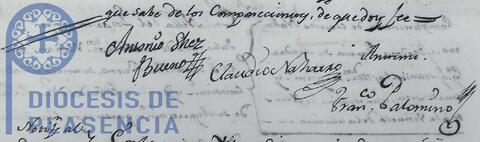 que sabe de los Comparecimos, de que doy fee
Antonio Shez
Bueno
Claudio Navarro
Antemi.
Fran.co Palomino
DIÓCESIS DE
PLASENCIA